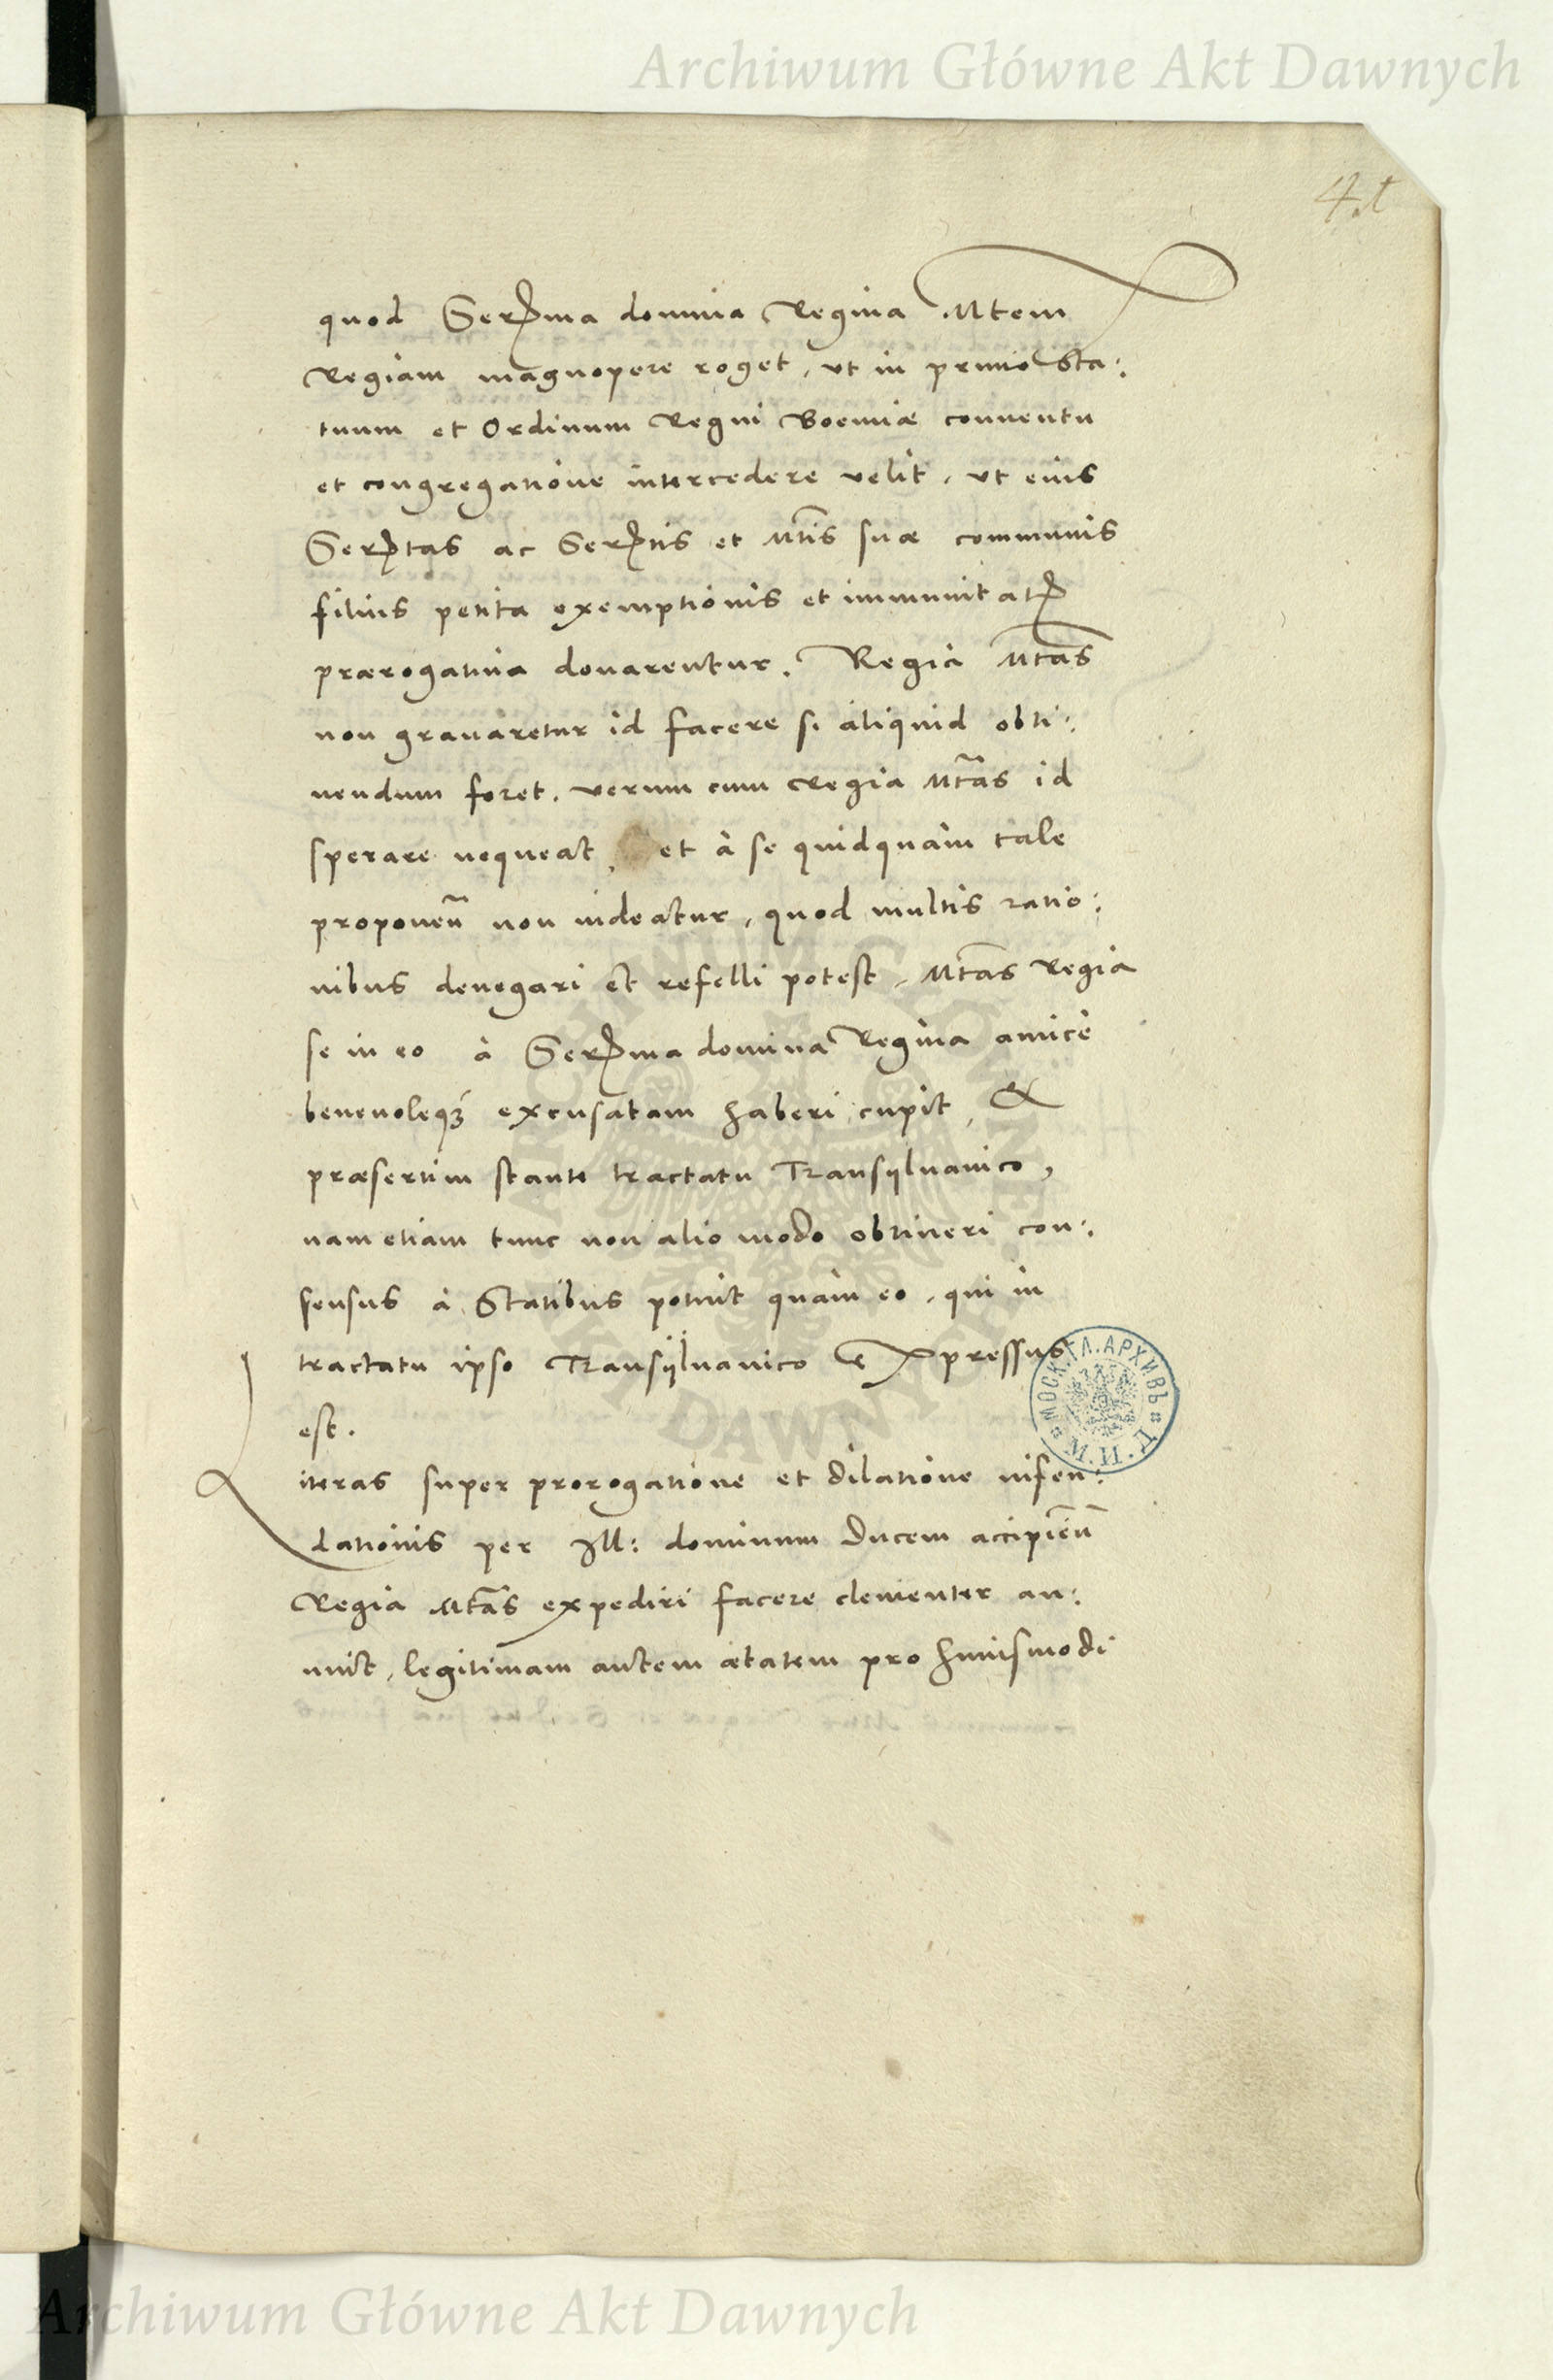 Archiwum Główne Akt Dawnych
quod Serma domina Regina Mtem
Regiam magnopere roget, ut in primo Sta:
tuum et Ordinum Regni Boemiæ conuentu
et congregatione intercedere velit, ut eius
Sertas ac Sertis et Mtis suæ communis
filius petita exemptionis et immunitatis
prærogatiua donarentur. Regia Mtas
non grauaretur id facere si aliquid obti:
nendum foret. verum cum Regia Mtas id
sperare nequeat, et à se quidquam tale
proponeñ non uideatur, quod multis ratio:
nibus denegari et refelli potest, Mtas Regia
se in eo à Serma domina Regina amicè
beneuoleq3 excusatam haberi cupit, &
præsertim stante tractatu Transyluanico,
nam etiam tunc non alio modo obtineri con:
sensus à Statibus potuit quam eo, qui in
tractatu ipso Transyluanico expressus
est.
Literas super prorogatione et dilatione infeu:
dationis per Ill: dominum Ducem accipieñ
Regia Mtas expediri facere clementer an:
nuit, legitimam autem ætatem pro huiusmodi
МОСК. ГЛ. АРХИВЪ
М. И. Д.
ARCHIWUM GŁÓWNE AKT DAWNYCH
Archiwum Główne Akt Dawnych